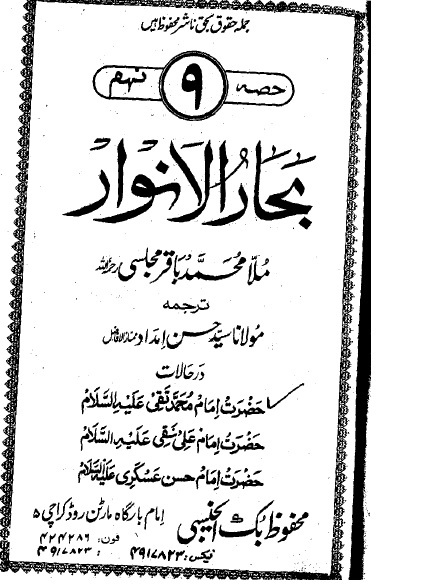 جملہ حقوق بحق ناشر محفوظ ہیں
حصہ ۹ نہم
بحار الانوار
مُلّا محمد باقر مجلسی رحمۃ اللہ
ترجمہ
مولانا سید حسن امداد ممتاز الافاضل
در حالات
حضرت امام محمد تقی علیہ السلام
حضرت امام علی نقی علیہ السلام
حضرت امام حسن عسکری علیہ السلام
محفوظ بک ایجنسی امام بارگاہ مارٹن روڈ کراچی ۵
فون: ۴۲۴۲۸۶
فیکس: ۴۹۱۷۸۲۳ : ۴۹۱۷۸۲۳